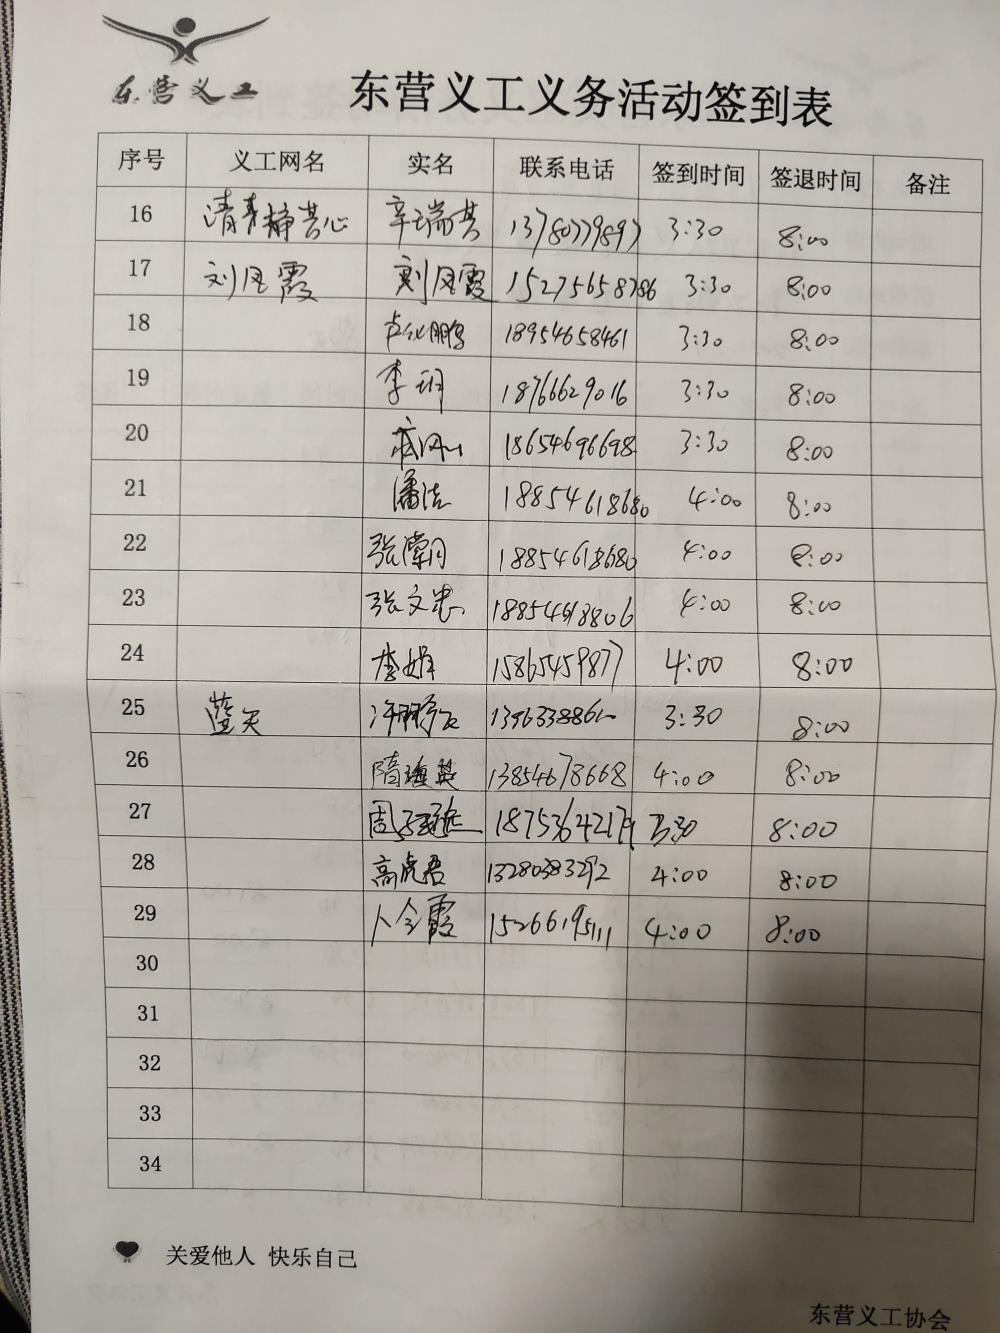 东营义工
东营义工义务活动签到表
序号 义工网名 实名 联系电话 签到时间 签退时间 备注
16 清静共心 辛瑞芬 3:30 8:00
17 刘凤霞 刘凤霞 15275658786 3:30 8:00
18 18954658461 3:30 8:00
19 李玥 18766629016 3:30 8:00
20 18654696698 3:30 8:00
21 潘洁 18854618680 4:00 8:00
22 18854618680 4:00 8:00
23 张文忠 18854618806 4:00 8:00
24 李娟 15865459877 4:00 8:00
25 蓝天 3:30 8:00
26 隋海英 13854678668 4:00 8:00
27 18753642179 3:30 8:00
28 高虎君 13280383292 4:00 8:00
29 卜令霞 15266195111 4:00 8:00
30
31
32
33
34
关爱他人 快乐自己
东营义工协会